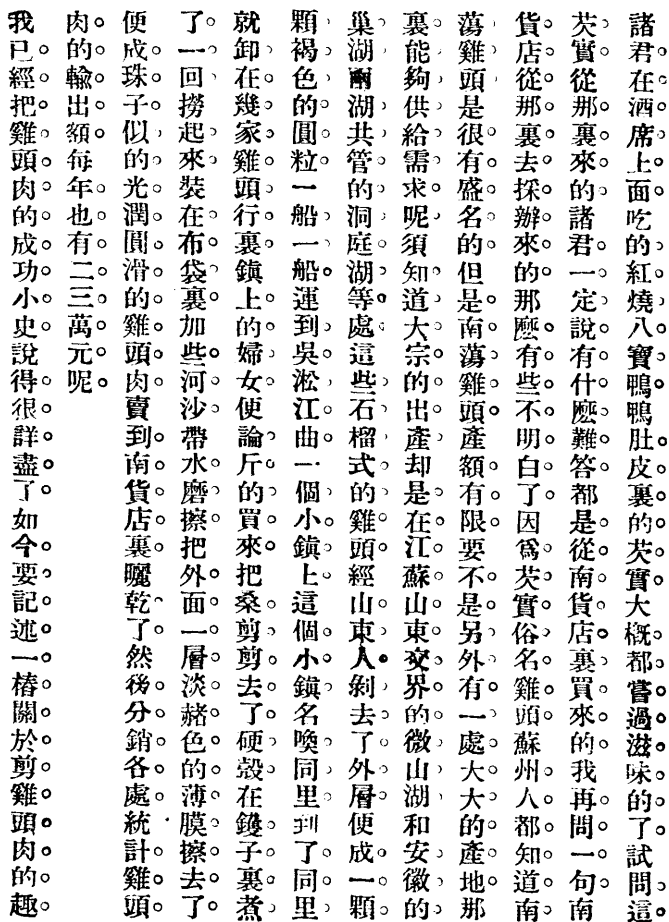 諸君在酒席上面吃的紅燒八寶鴨鴨肚皮裏的芡實大概都嘗過滋味的了試問這。
芡實從那裏來的諸君一定說有什麽難答都是從南貨店裏買來的我再問一句南
貨店從那裏去採辦來的那麽有些不明白了因爲芡實俗名雞頭蘇州人都知道南
蕩雞頭是很有盛名的但是南蕩雞頭產額有限要不是另外有一處大大的產地那
裏能夠供給需求呢須知道大宗的出產却是在江蘇山東交界的微山湖和安徽的
巢湖兩湖共管的洞庭湖等處這些石榴式的雞頭經山東人剝去了外層便成一顆
顆褐色的圓粒一船一船運到吳淞江曲一個小鎮上這個小鎮名喚同里到了同里
就卸在幾家雞頭行裏鎮上的婦女便論斤的買來把桑剪剪去了硬殼在鑊子裏煮
了一回撈起來裝在布袋裏加些河沙帶水磨擦把外面一層淡赭色的薄膜擦去了
便成珠子似的光潤圓滑的雞頭肉賣到南貨店裏曬乾了然後分銷各處統計雞頭
肉的輸出額每年也有二三萬元呢。
我已經把雞頭肉的成功小史說得很詳盡了如今要記述一樁關於剪雞頭肉的趣。